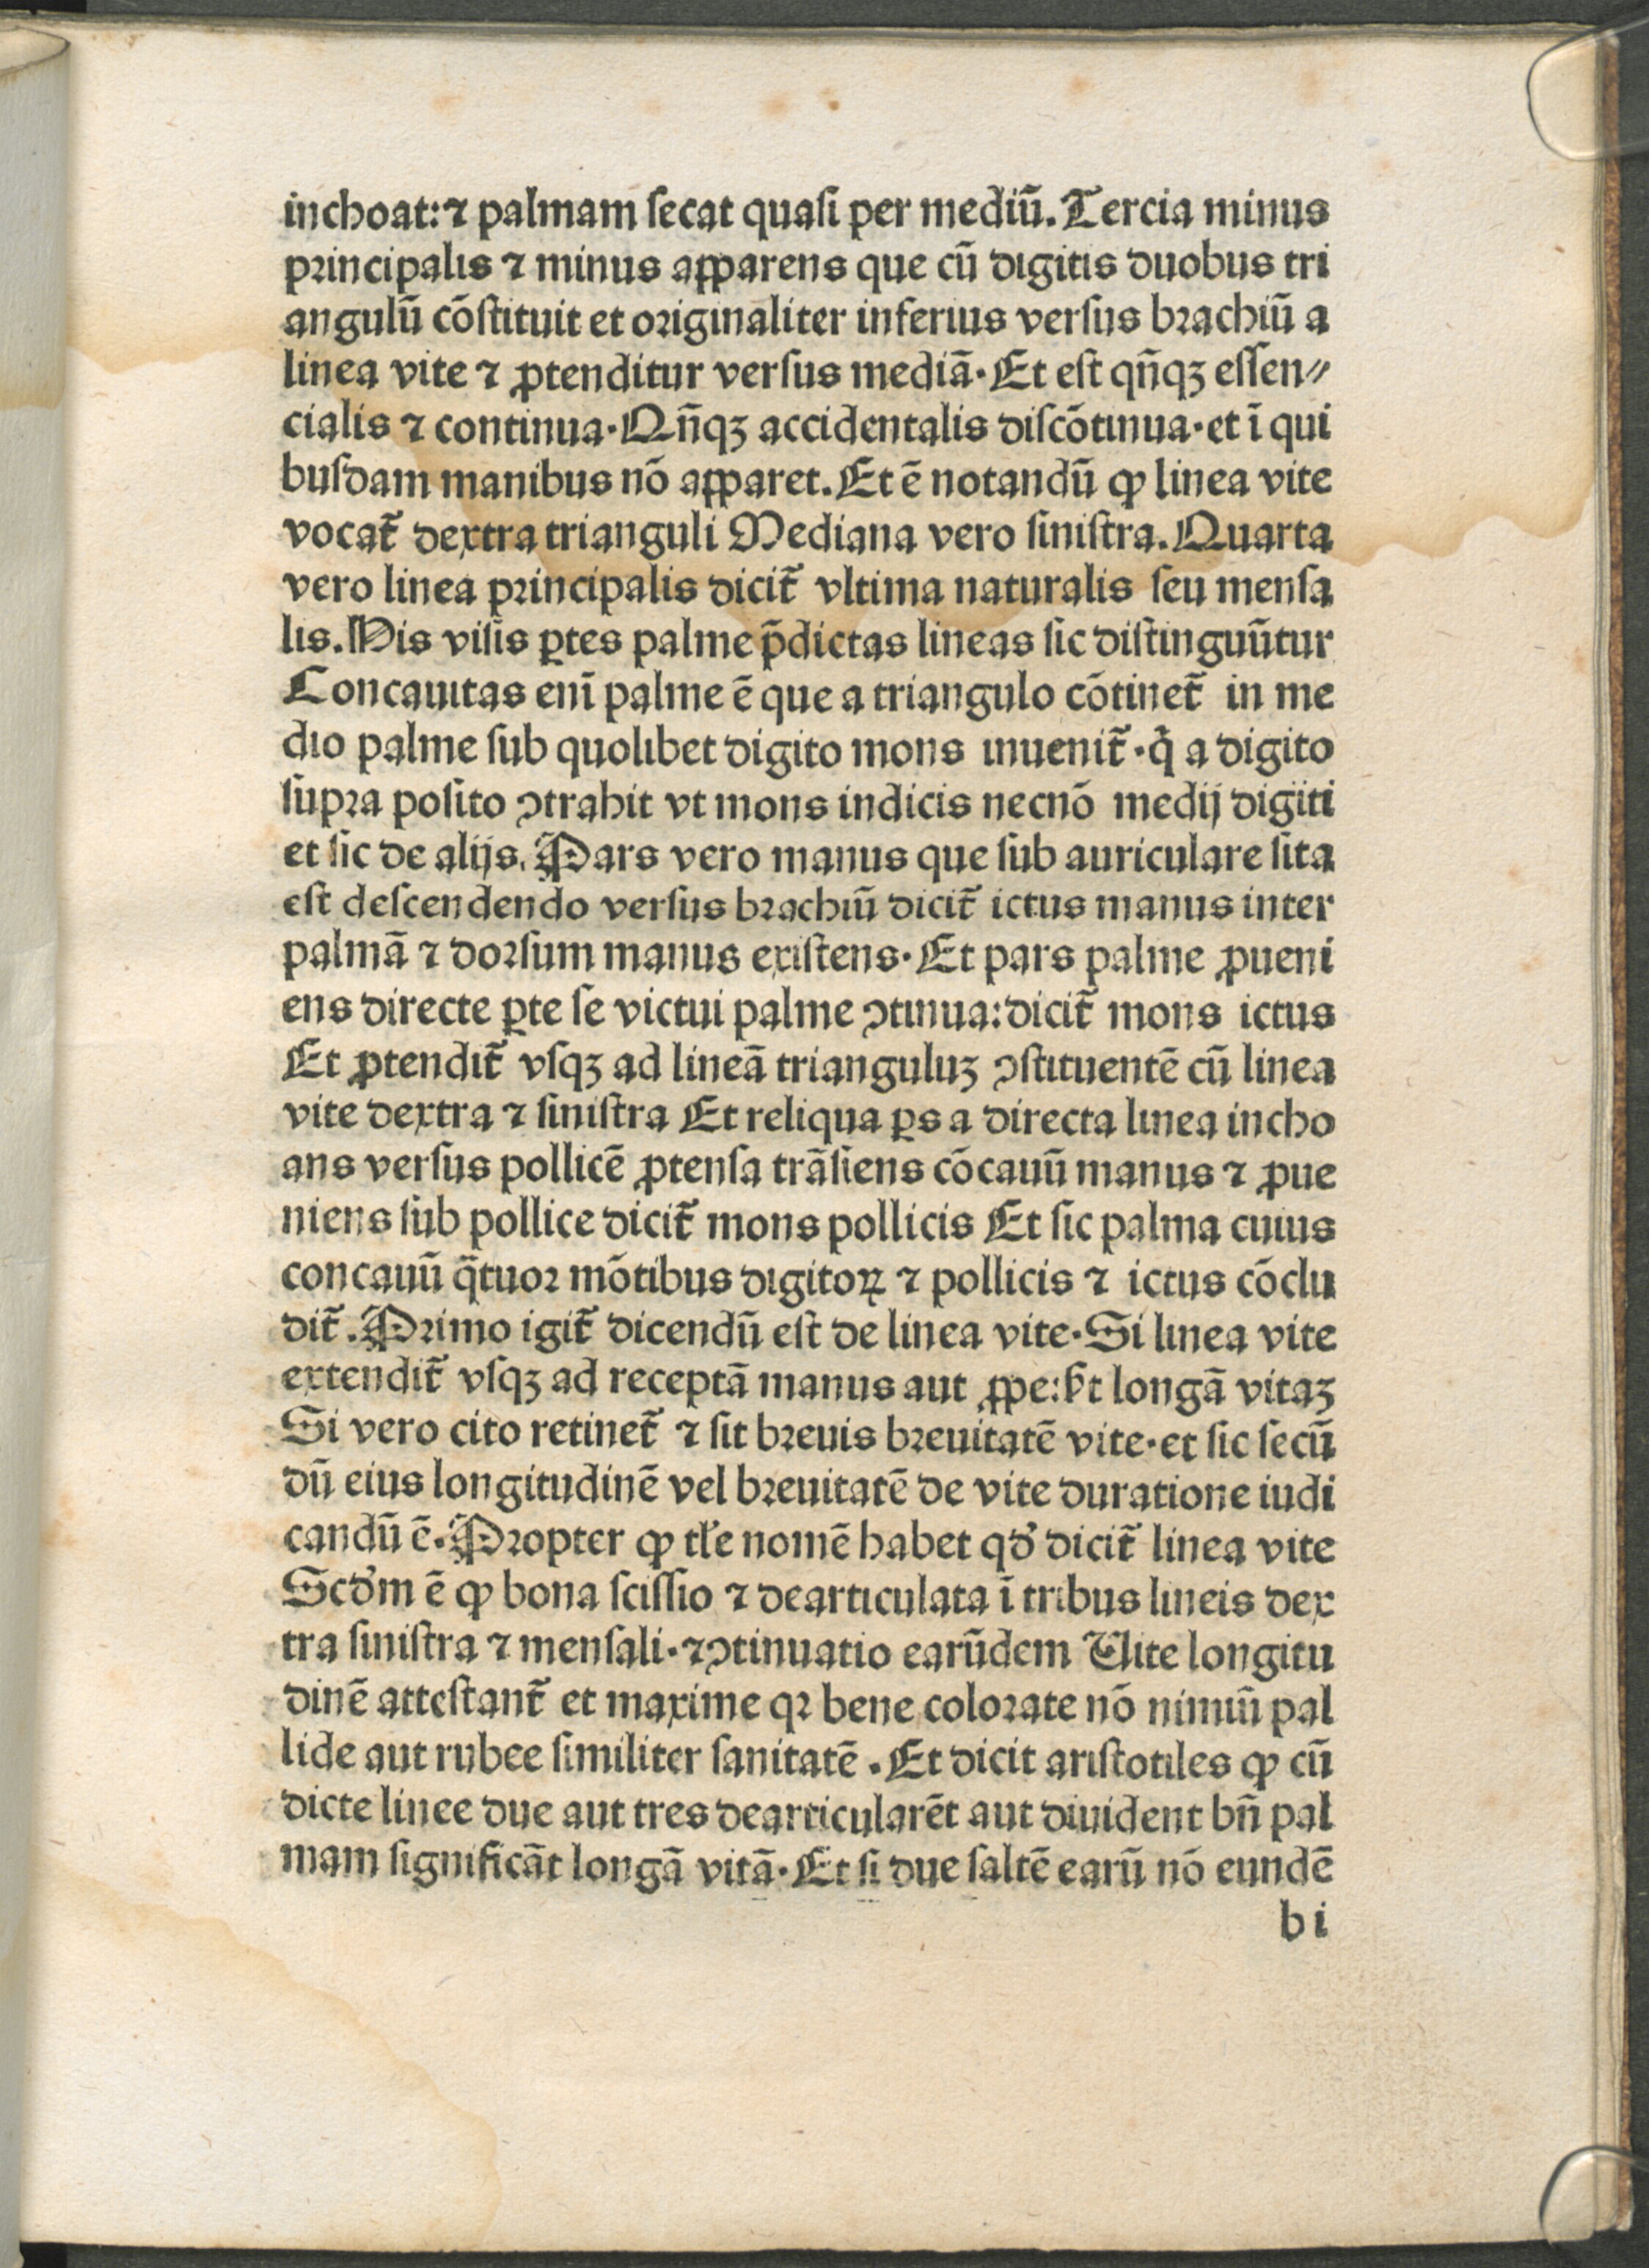 inchoat: ⁊ palmam ſecat quaſi per mediū. Tercia minus
principalis ⁊ minus apparens que cū digitis duobus tri
angulū cōſtituit et originaliter inferius verſus brachiū a
linea vite ⁊ ꝓtenditur verſus mediā· Et eſt qñqꝫ eſſen⸗
cialis ⁊ continua· Qñqꝫ accidentalis diſcōtinua· et ī qui
buſdam manibus nō apparet. Et ē notandū ꝙ linea vite
vocat̄ dextra trianguli Mediana vero ſiniſtra. Quarta
vero linea principalis dicit̄ vltima naturalis ſeu menſa
lis. His viſis ꝑtes palme p̄dictas lineas ſic diſtinguūtur
Concauitas enī palme ē que a triangulo cōtinet̄ in me
dio palme ſub quolibet digito mons inuenit̄ · q̄ a digito
ſupra poſito ꝯtrahit vt mons indicis necnō medij digiti
et ſic de alijs. Pars vero manus que ſub auriculare ſita
eſt deſcendendo verſus brachiū dicit̄ ictus manus inter
palmā ⁊ dorſum manus exiſtens· Et pars palme ꝓueni
ens directe ꝑte ſe victui palme ꝯtinua: dicit̄ mons ictus
Et ꝓtendit̄ vſqꝫ ad lineā trianguluꝫ ꝯſtituentē cū linea
vite dextra ⁊ ſiniſtra Et reliqua ꝑs a directa linea incho
ans verſus pollicē ꝓtenſa trāſiens cōcauū manus ⁊ ꝓue
niens ſub pollice dicit̄ mons pollicis Et ſic palma cuius
concauū q̄tuor mōtibus digitoꝝ ⁊ pollicis ⁊ ictus cōclu
dit̄ . Primo igit̄ dicendū eſt de linea vite· Si linea vite
extendit̄ vſqꝫ ad receptā manus aut ꝓpe: hꝫt longā vitaꝫ
Si vero cito retinet̄ ⁊ ſit breuis breuitatē vite· et ſic ſecū
dū eius longitudinē vel breuitatē de vite duratione iudi
candū ē. Propter ꝙ tl̓e nomē habet qd̓ dicit̄ linea vite
Scd̓m ē ꝙ bona ſciſſio ⁊ dearticulata ī tribus lineis dex
tra ſiniſtra ⁊ menſali· ⁊ ꝯtinuatio earūdem Vite longitu
dinē atteſtant̄ et maxime qꝛ bene colorate nō nimiū pal
lide aut rubee ſimiliter ſanitatē . Et dicit ariſtotiles ꝙ cū
dicte linee due aut tres dearticularēt aut diuident bn̄ pal
mam ſignificāt longā vitā· Et ſi due ſaltē earū nō eundē
b i